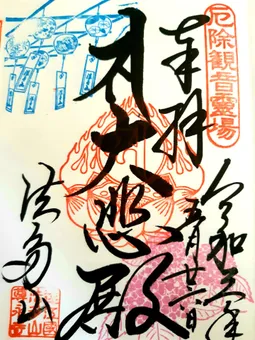 厄除観音霊場
奉拝
令和三年
五月廿六日
大悲殿
法多山